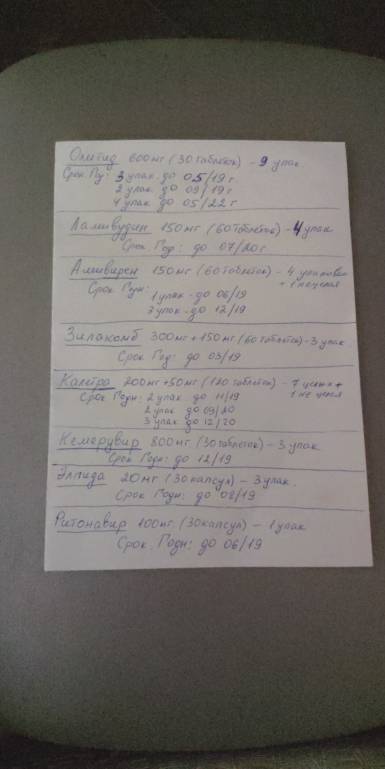 Олитид 600мг (30 таблеток) - 9 упак.
Срок Пу: 3 упак. до 05/19г
2 упак. до 09/19г
4 упак до 05/22г
Ламивудин 150мг (60 таблеток) - 4 упак
Срок Год: до 07/20г
Амивирен 150мг (60 таблеток) - 4 упаковки
+ 1 не целая
Срок Годн:
1 упак - до 06/19
3 упак - до 12/19
Зилакомб 300мг + 150мг (60 таблеток) - 3 упак
Срок Год: до 03/19
Калетра 200мг + 50мг (120 таблеток) - 7 целых +
1 не целая
Срок Годн: 2 упак до 11/19
2 упак до 09/20
3 упак до 12/20
Кемерувир 800мг (30 таблеток) - 3 упак
Срок Годн: до 12/19
Элпида 20мг (30 капсул) - 3 упак.
Срок Годн: до 08/19
Ритонавир 100мг (30 капсул) - 1 упак
Срок Годн: до 06/19